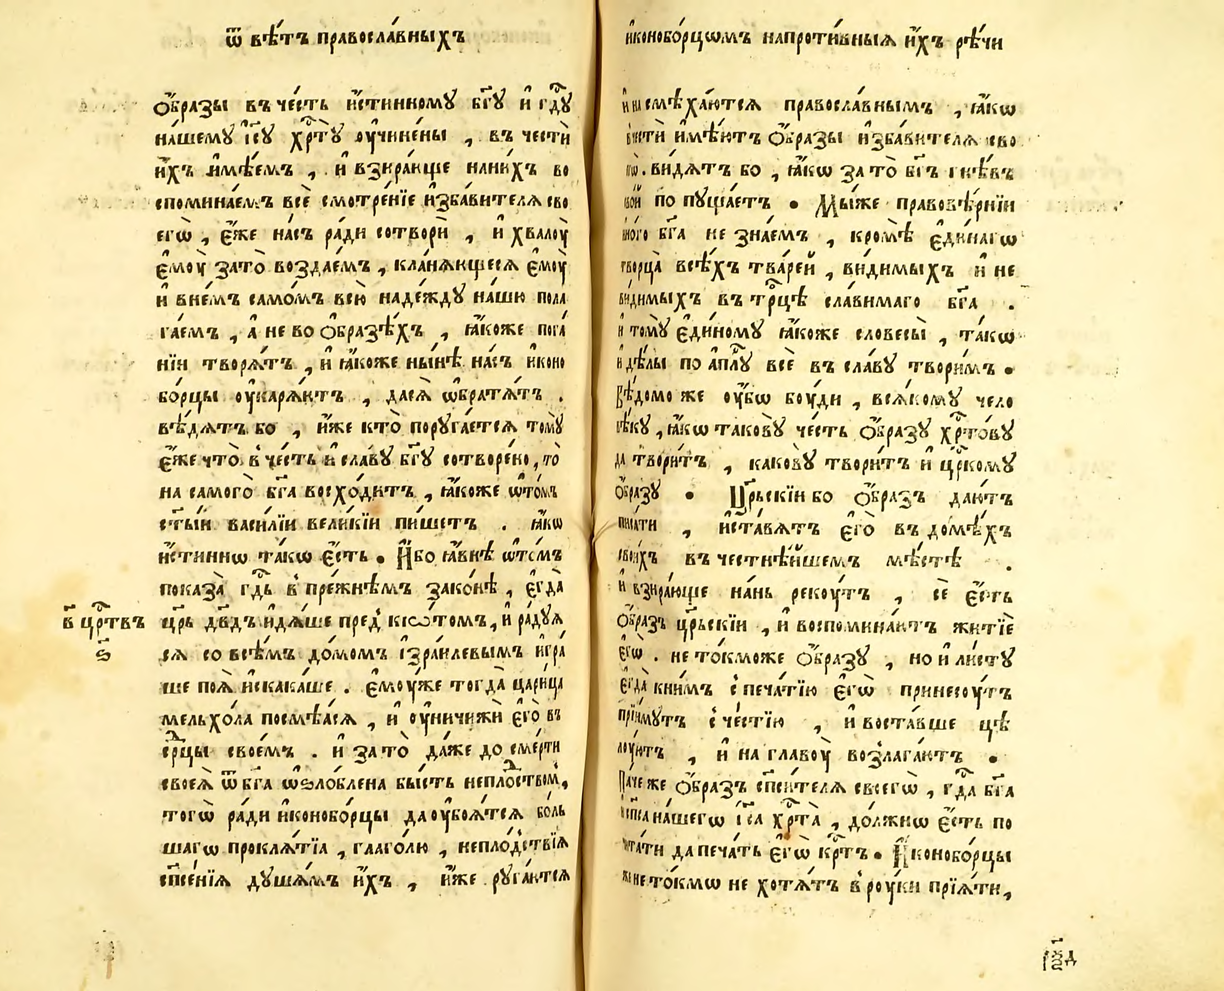 ѿ вѣ́тъ правосла́вныхъ
ѻ҆́бразы въ че́сть и҆́стинному бг҃у и҆ гд҇у
на́шему і҆с҃у хр҇ту̀ оу҆чине́ны , въ че́сти
и҆́хъ и҆мѣ́емъ , и҆ взира́юще на ни́хъ во
споминае́мъ всѐ смотре́нїе и҆зба́вителѧ сво
егѡ̀ , є҆́же на́съ ра́ди сотворѝ , и҆ хвалоу̀
є҆моу̀ за то̀ воздае́мъ , кла́нѧющесѧ є҆моу̀
и҆ в не́мъ само́мъ всю̀ наде́жду на́шю пола
га́емъ , а҆ не во ѻ҆́бразѣхъ , ꙗ҆́коже пога́
нїи творѧ́тъ , и҆ ꙗ҆́коже ны́нѣ на́съ и҆коно
бо́рцы оу҆карѧ́ютъ , да сѧ̀ ѡ҆братѧ́тъ .
вѣ́дѧтъ бо , и҆́же кто̀ поруга́етсѧ тому̀
є҆́же что̀ в че́сть и҆ сла́ву бг҃у сотворе́но , то̀
на самого̀ бг҃а восхо́дитъ , ꙗ҆́коже ѡ҆ то́мъ
ст҃ы́й васи́лїи вели́кїи пи́шетъ . ꙗ҆́кѡ
и҆́стиннѡ та́кѡ є҆́сть . И҆́бо ꙗ҆́внѣ ѡ҆ то́мъ
показа̀ гд҇ь в пре́жнѣмъ зако́нѣ , є҆гда̀
цр҃ь дв҃дъ и҆дѧ́ше пред̾ кїѡ́томъ , и҆ ра́дуѧ
сѧ со всѣ́мъ до́момъ і҆зр҃и́левымъ и҆гра́
ше поѧ̀ и҆ скака́ше . є҆моу́же тогда̀ цари́ца
мельхо́ла посмѣ́ѧсѧ , и҆ оу҆ничижѝ є҆го̀ въ
ср҇цы свое́мъ . и҆ за то̀ да́же до сме́рти
своеѧ̀ ѿ бг҃а ѡ҆ѕло́блена бы́сть непло́дством̾,
тогѡ̀ ра́ди и҆коноборцы да оу҆боѧ́тсѧ бо́ль
шагѡ проклѧ́тїа , глаго́лю , непло́дствїѧ
сп҃се́нїѧ душа́мъ и҆́хъ , и҆́же руга́ютсѧ
в҃ цр҇твъ
ѕ҃
и҆коноборцѡмъ напроти́вныѧ и҆́хъ рѣ́чи
и҆ насмѣха́ютсѧ правосла́внымъ , ꙗ҆́кѡ
в че́сти и҆мѣ́ютъ ѻ҆́бразы и҆зба́вителѧ сво
егѡ̀ . ви́дѧт бо , ꙗ҆́кѡ за то̀ бг҃ъ гнѣ́въ
сво́й попуща́етъ . Мы́же правовѣ́рнїи
и҆но́го бг҃а не зна́емъ , кромѣ̀ є҆ди́нагѡ
творца̀ всѣ́хъ тва́рей , ви́димыхъ и҆ не
ви́димыхъ в тр҇цѣ сла́вимаго бг҃а .
и҆ тому̀ є҆ди́ному ꙗ҆́коже словесы̀ , та́кѡ
и҆ дѣ́лы по а҆пл҇у всѐ въ сла́ву твори́мъ .
Вѣ́домо же оу҆́бѡ боу́ди , всѧ́кому чело
вѣ́ку , ꙗ҆́кѡ такову̀ че́сть ѻ҆́бразу хр҇то́ву
да твори́тъ , какову̀ твори́тъ и҆ цр҇кому
ѻ҆́бразу . Цр҃ьскїи бо ѻ҆́бразъ даю́тъ
писа́ти , и҆ ста́вѧтъ є҆го̀ въ домѣ́хъ
свои́хъ въ честнѣ́йшемъ мѣ́стѣ .
и҆ взира́юще на́нь рекоу́тъ , сѐ є҆́сть
ѻ҆́бразъ цр҃ьскїи , и҆ воспомина́ютъ житїѐ
є҆гѡ̀ . не то́кможе ѻ҆́бразу , но и҆ листу̀
є҆гда̀ к ни́мъ с печа́тїю є҆гѡ̀ принесоу́тъ
прїи́мутъ с че́стїю , и҆ воста́вше цѣ
лоу́ютъ , и҆ на главоу̀ возлага́ютъ .
Па́че же ѻ҆́бразъ сп҃си́телѧ своегѡ̀ , гд҇а бг҃а
и҆ сп҃са на́шегѡ і҆с҃а хр҇та̀ , до́лжнѡ є҆́сть по
чита́ти да печа́ть є҆гѡ̀ кр҇тъ . И҆коноборцы
же не то́кмѡ не хотѧ́тъ в роу́ки прїѧ́ти,